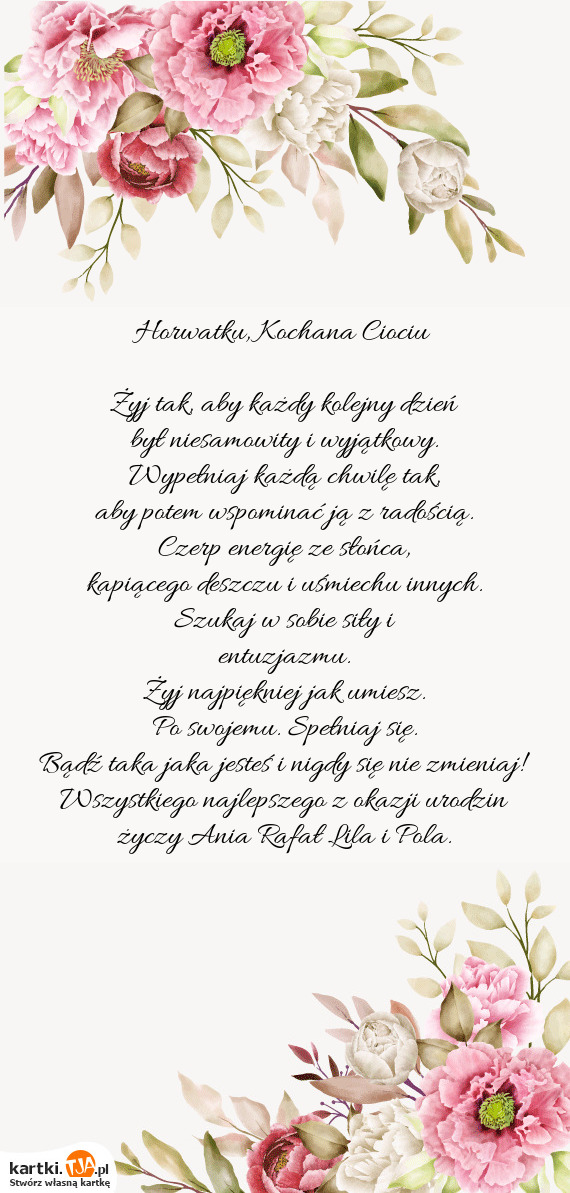 Horwatku, Kochana Ciociu
Żyj tak, aby każdy kolejny dzień
był niesamowity i wyjątkowy.
Wypełniaj każdą chwilę tak,
aby potem wspominać ją z radością.
Czerp energię ze słońca,
kapiącego deszczu i uśmiechu innych.
Szukaj w sobie siły i
entuzjazmu.
Żyj najpiękniej jak umiesz.
Po swojemu. Spełniaj się.
Bądź taka jaka jesteś i nigdy się nie zmieniaj!
Wszystkiego najlepszego z okazji urodzin
życzy Ania Rafał Lila i Pola.
kartki.TJA.pl
Stwórz własną kartkę